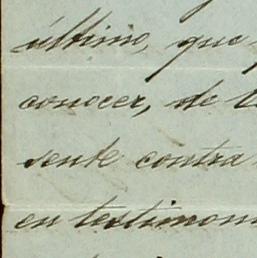 último, que
conocer, de
sente contra
en testimon